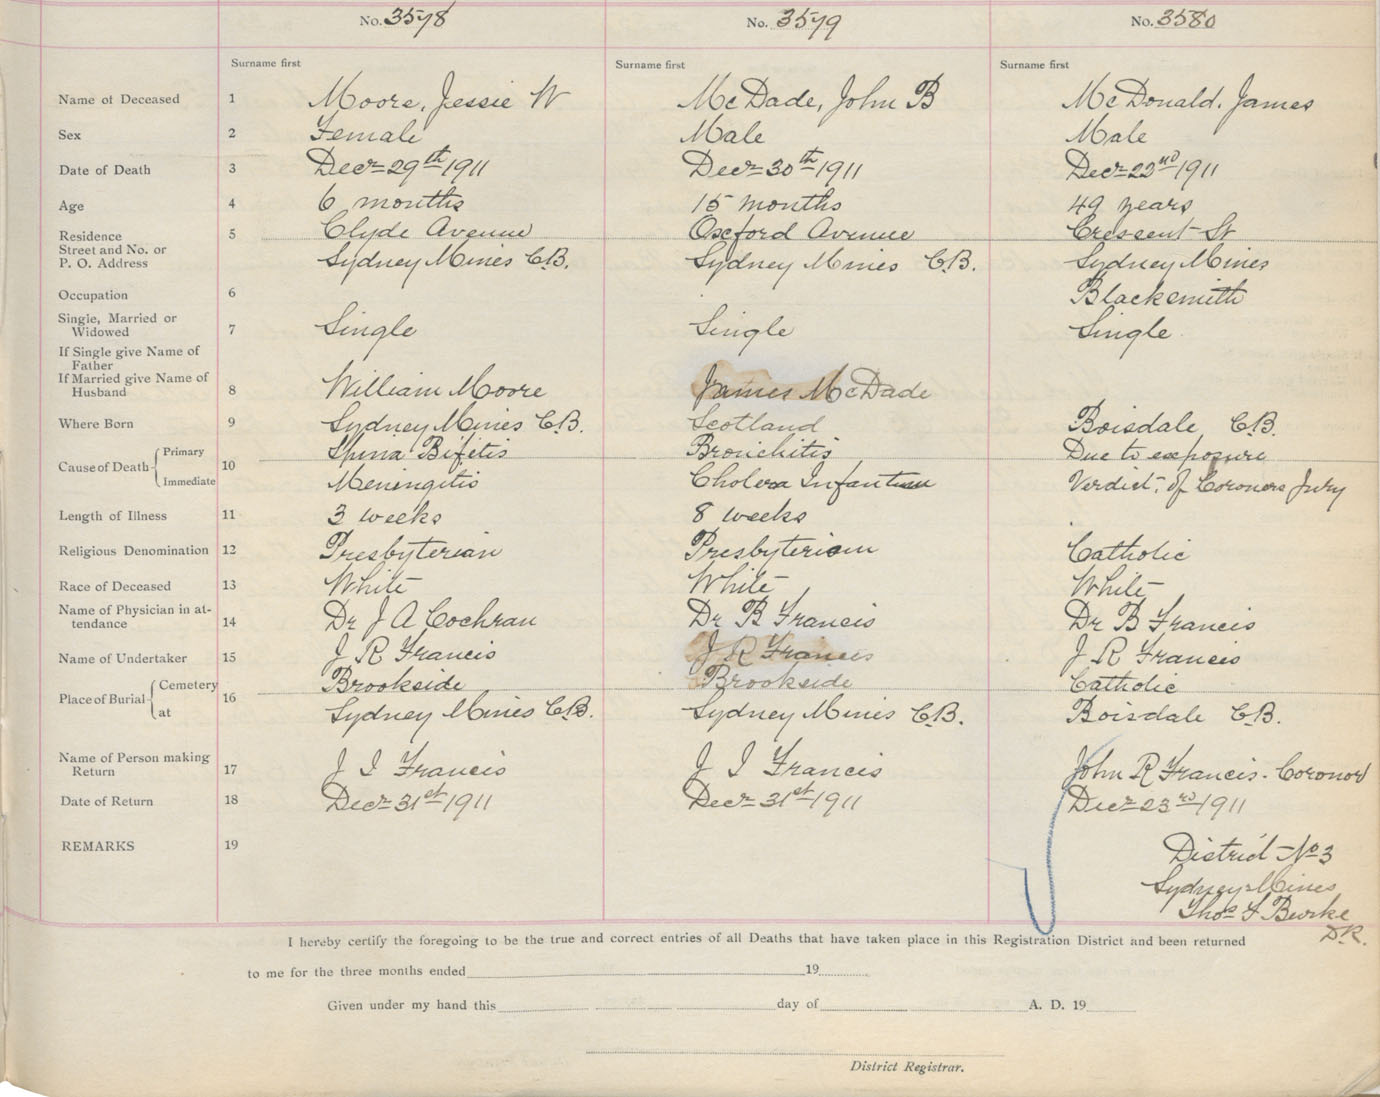 No. 3578 No. 3579 No. 3580
Surname first Surname first Surname first
Name of Deceased 1 Moore, Jessie W McDade, John B McDonald, James
Sex 2 Female Male Male
Date of Death 3 Decr 29th 1911 Decr 30th 1911 Decr 22nd 1911
Age 4 6 months 15 months 49 years
Residence 5 Clyde Avenue Oxford Avenue Crescent St
Street and No. or
P. O. Address Sydney Mines C.B. Sydney Mines C.B. Sydney Mines
Occupation 6 Blacksmith
Single, Married or
Widowed 7 Single Single Single
If Single give Name of
Father
If Married give Name of
Husband 8 William Moore James McDade
Where Born 9 Sydney Mines C.B. Scotland Boisdale C.B.
Cause of Death Primary 10 Spina Bifitis Bronchitis Due to exposure
Immediate Meningitis Cholera Infantum Verdict of Coroners Jury
Length of Illness 11 3 weeks 8 weeks
Religious Denomination 12 Presbyterian Presbyterian Catholic
Race of Deceased 13 White White White
Name of Physician in at-
tendance 14 Dr J A Cochran Dr B Francis Dr B Francis
Name of Undertaker 15 J R Francis J R Francis J R Francis
Place of Burial Cemetery 16 Brookside Brookside Catholic
at Sydney Mines C.B. Sydney Mines C.B. Boisdale C.B.
Name of Person making
Return 17 J I Francis J I Francis John R Francis - Coronor
Date of Return 18 Decr 31st 1911 Decr 31st 1911 Decr 23rd 1911
REMARKS 19 District No 3
Sydney Mines
Thos F Burke
D.R.
I hereby certify the foregoing to be the true and correct entries of all Deaths that have taken place in this Registration District and been returned
to me for the three months ended 19
Given under my hand this day of A. D. 19
District Registrar.